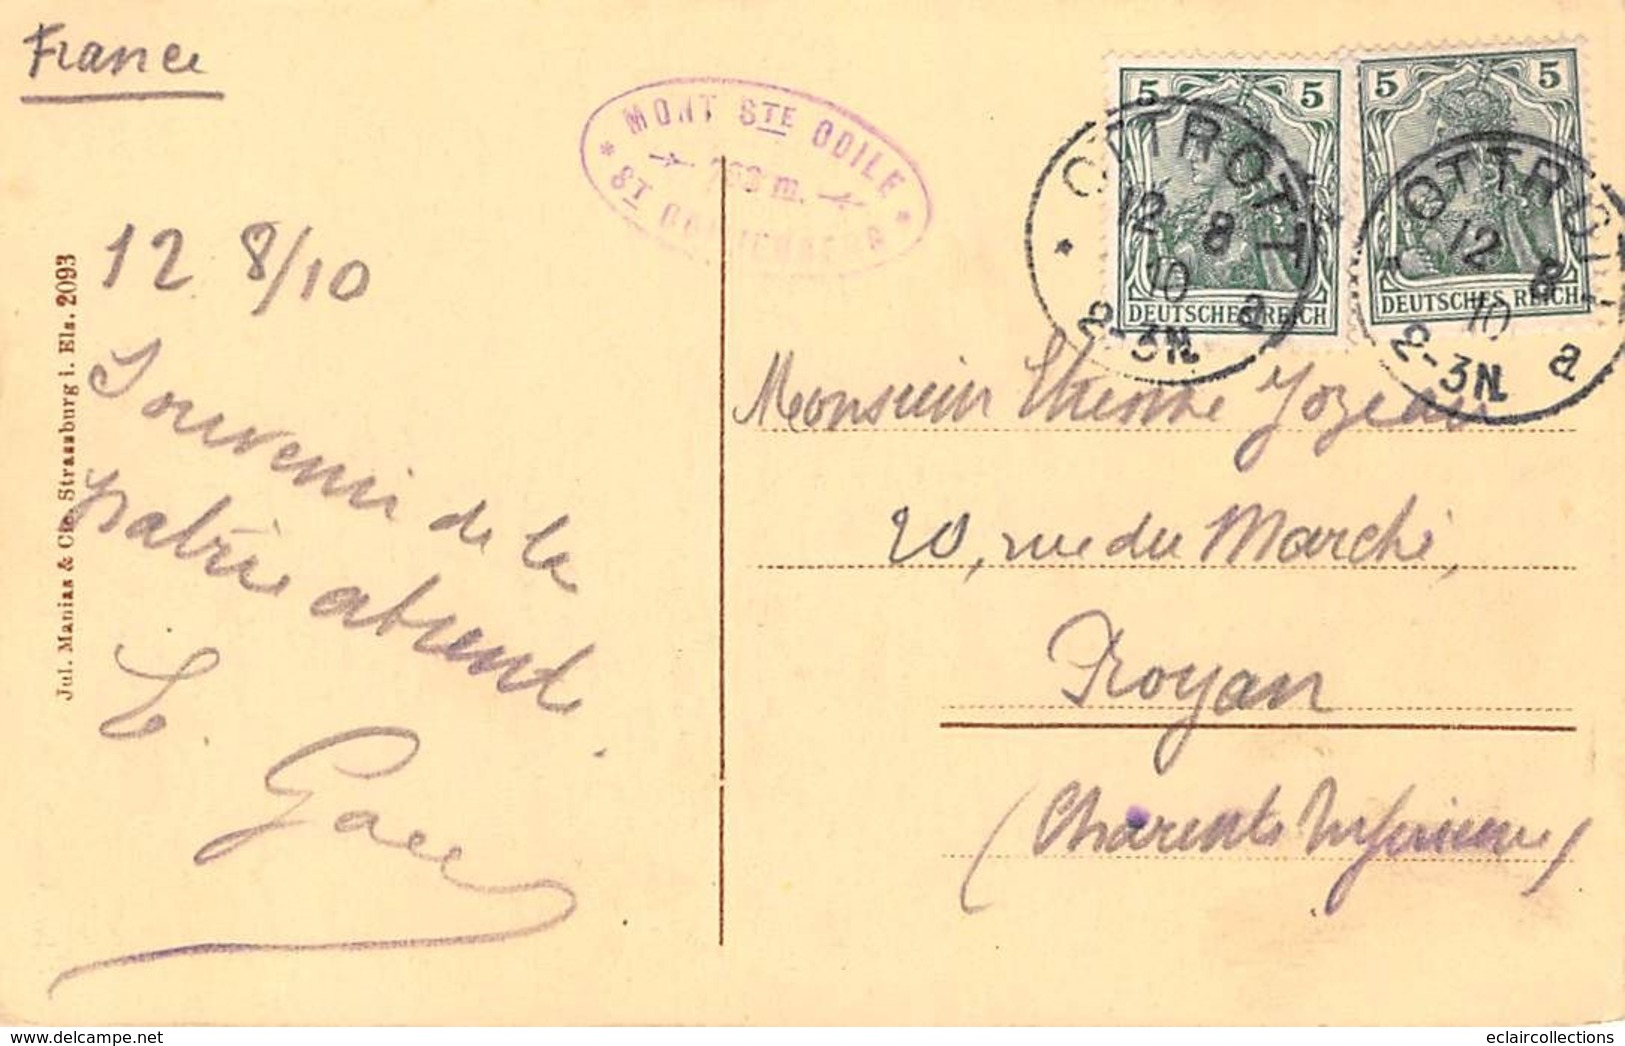 France
MONT STE ODILE
763 m.
ST ODILIENBERG
5 5
DEUTSCHES REICH
5 5
DEUTSCHES REICH
OTTROTT
12 8
10
2-3N.
a
OTTROTT
12 8
10
2-3N.
a
12 8/10
Souvenir de la
patrie absente
E. G
Monsieur Etienne Jozeau
20, rue du Marché,
Royan
(Charente Inférieure)
Jul. Manias & Cie. Strassburg i. Els. 2093
www.delcampe.net
eclaircollections